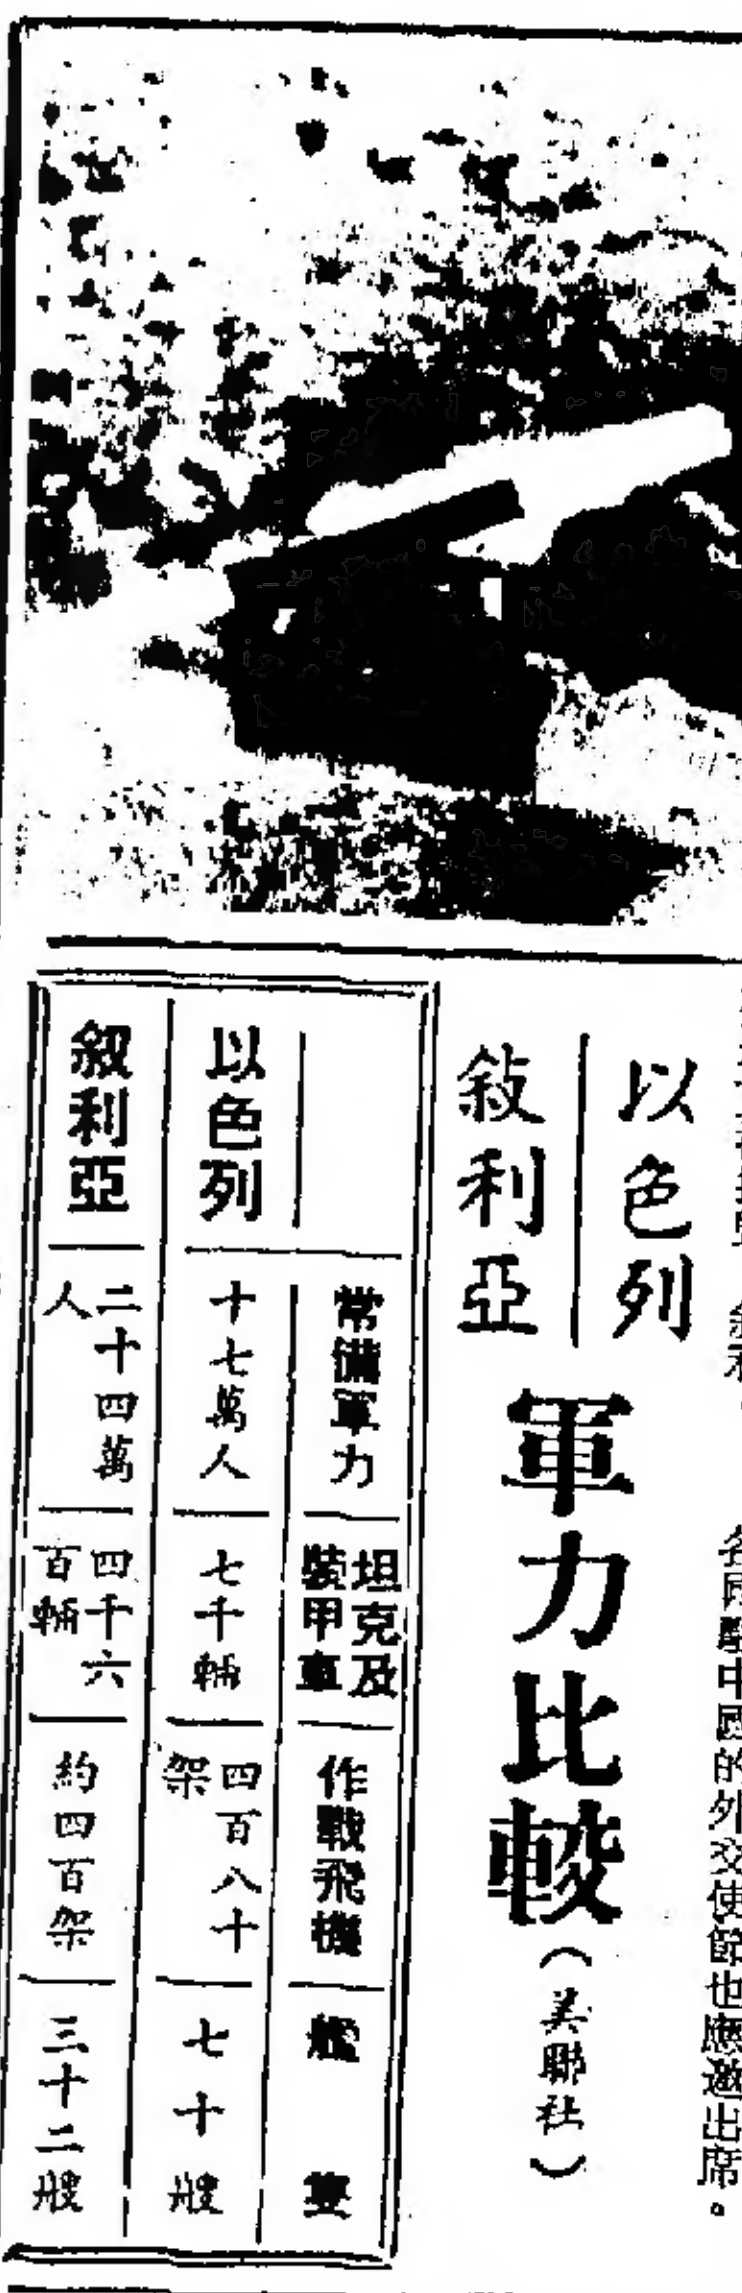 各國駐中國的外交使節也應邀出席。
以色列
敍利亞
軍力比較(美聯社)
常備軍力
坦克及
裝甲車
作戰飛機
艦艇
以色列
十七萬人
七千輛
四百八十
架
七十艘
叙利亞
二十四萬
人
四千六
百輛
約四百架
三十二艘